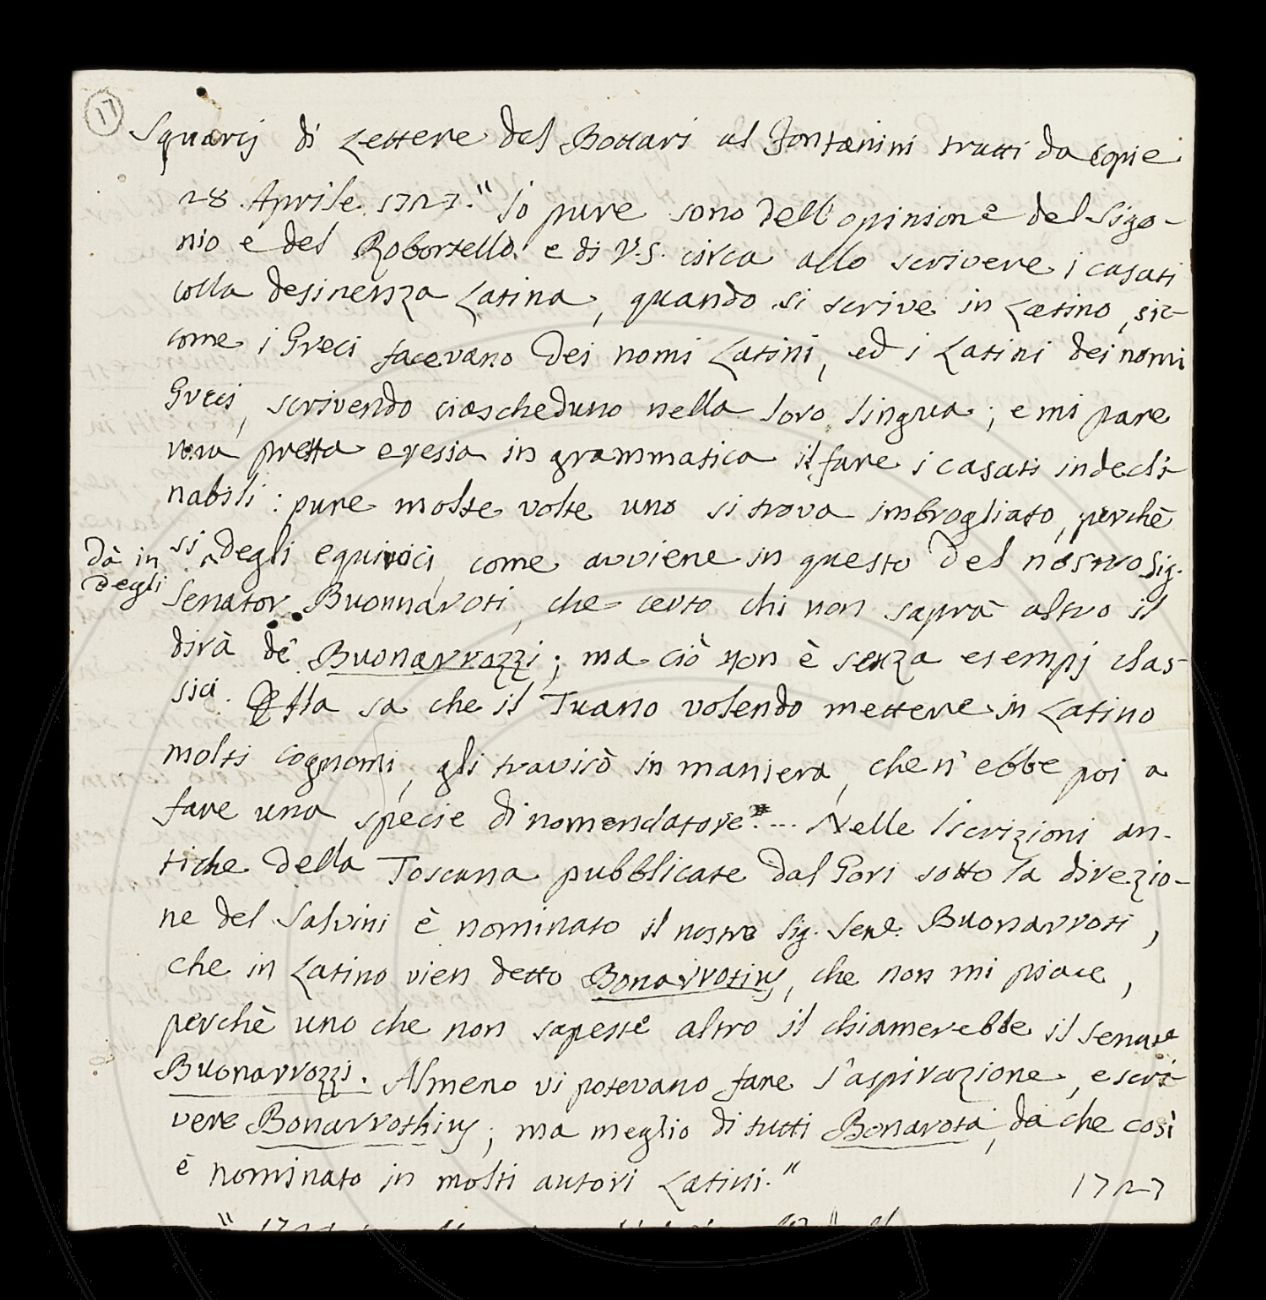 17
Squarcj di Lettere del Bottari al Fontanini tratti da copie
28. Aprile 1727. "Io pure sono dell'opinione del Sigo-
nio e del Robortello. e di V.S. circa allo scrivere i casati
colla desinenza Latina, quando si scrive in Latino, sic-
come i Greci facevano dei nomi Latini, ed i Latini dei nomi
Greci, scrivendo ciascheduno nella loro lingua; e mi pare
una pretta eresia in grammatica il fare i casati indecli-
nabili: pure molte volte uno si trova imbrogliato, perchè
dà in
degli
si degli equivoci, come avviene in questo del nostro Sig.
Senator Buonnaroti, che certo chi non saprà altro il
dirà de Buonarrozzi; ma ciò non è senza esempj clas-
sici. Ella sa che il Tuano volendo mettere in Latino
molti cognomi, gli travisò in maniera, che n'ebbe poi a
fare una specie di nomenclatore.... Nelle Iscrizioni an-
tiche della Toscana pubblicate dal Gori sotto la direzio-
ne del Salvini è nominato il nostro Sig. Sene. Buonarroti,
che in Latino vien detto Bonarrotius, che non mi piace,
perchè uno che non sapesse altro il chiamerebbe il Senare
Buonarrozzi. Almeno vi potevano fare l'aspirazione, e scri-
vere Bonarrothius; ma meglio di tutti Bonarota, da che così
è nominato in molti autori Latini."
1727